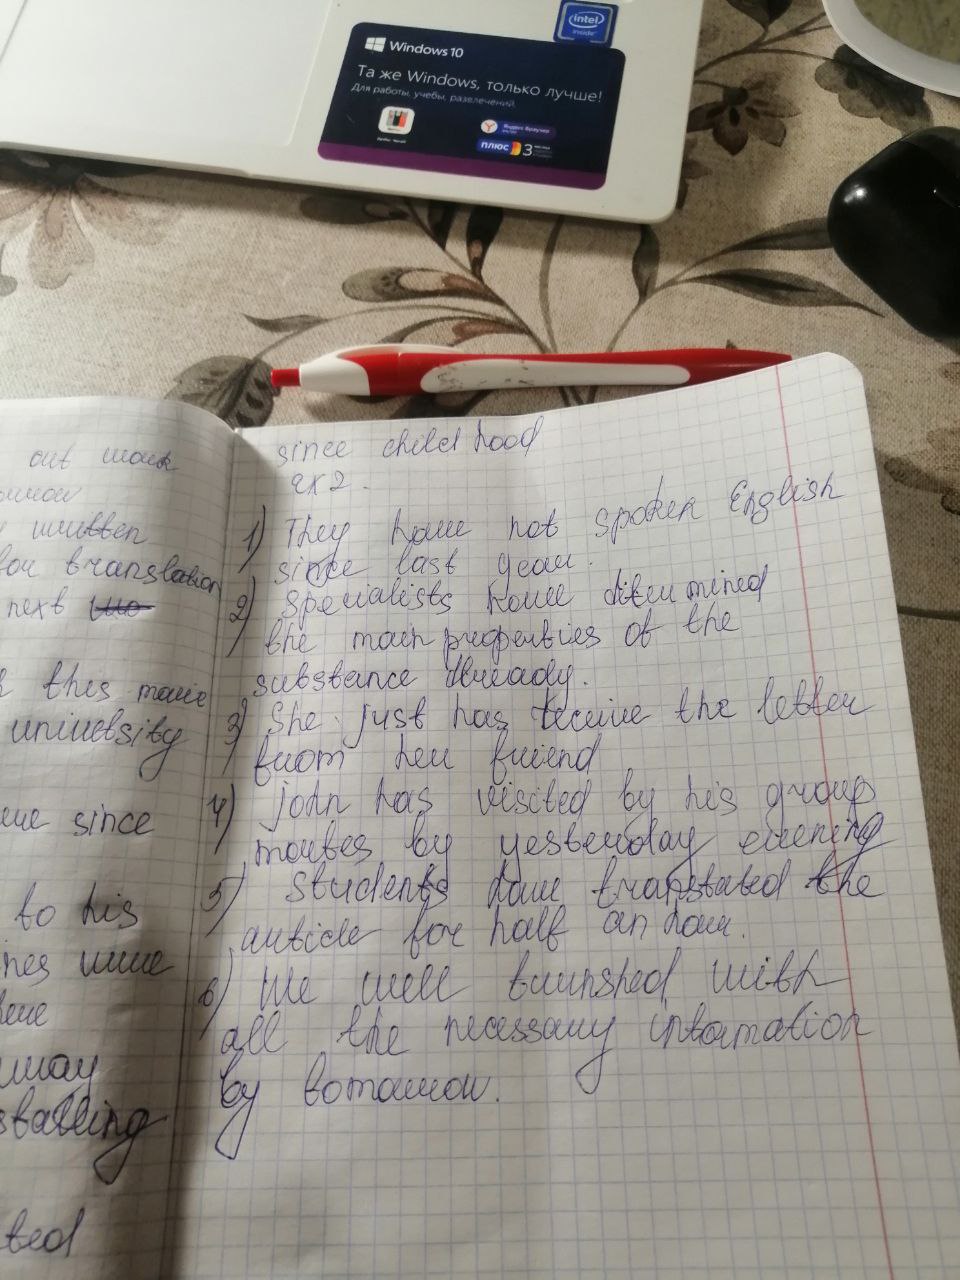 intel
inside
Windows 10
Та же Windows, только лучше!
Для работы, учебы, развлечений
Яндекс Браузер
плюс 3
since child hood
ex 2.
1) They have not spoken English
since last year.
2) Specialists have ditermined
the main properties of the
substance already.
3) She just has receive the letter
from her friend
4) John has visited by his group
mates by yesterday evening
5) Students have translated the
article for half an hour.
6) We will furnshed with
all the necessary information
by tomorrow.
out work
written
for translation
next
this movie
university
since
to his
were
way